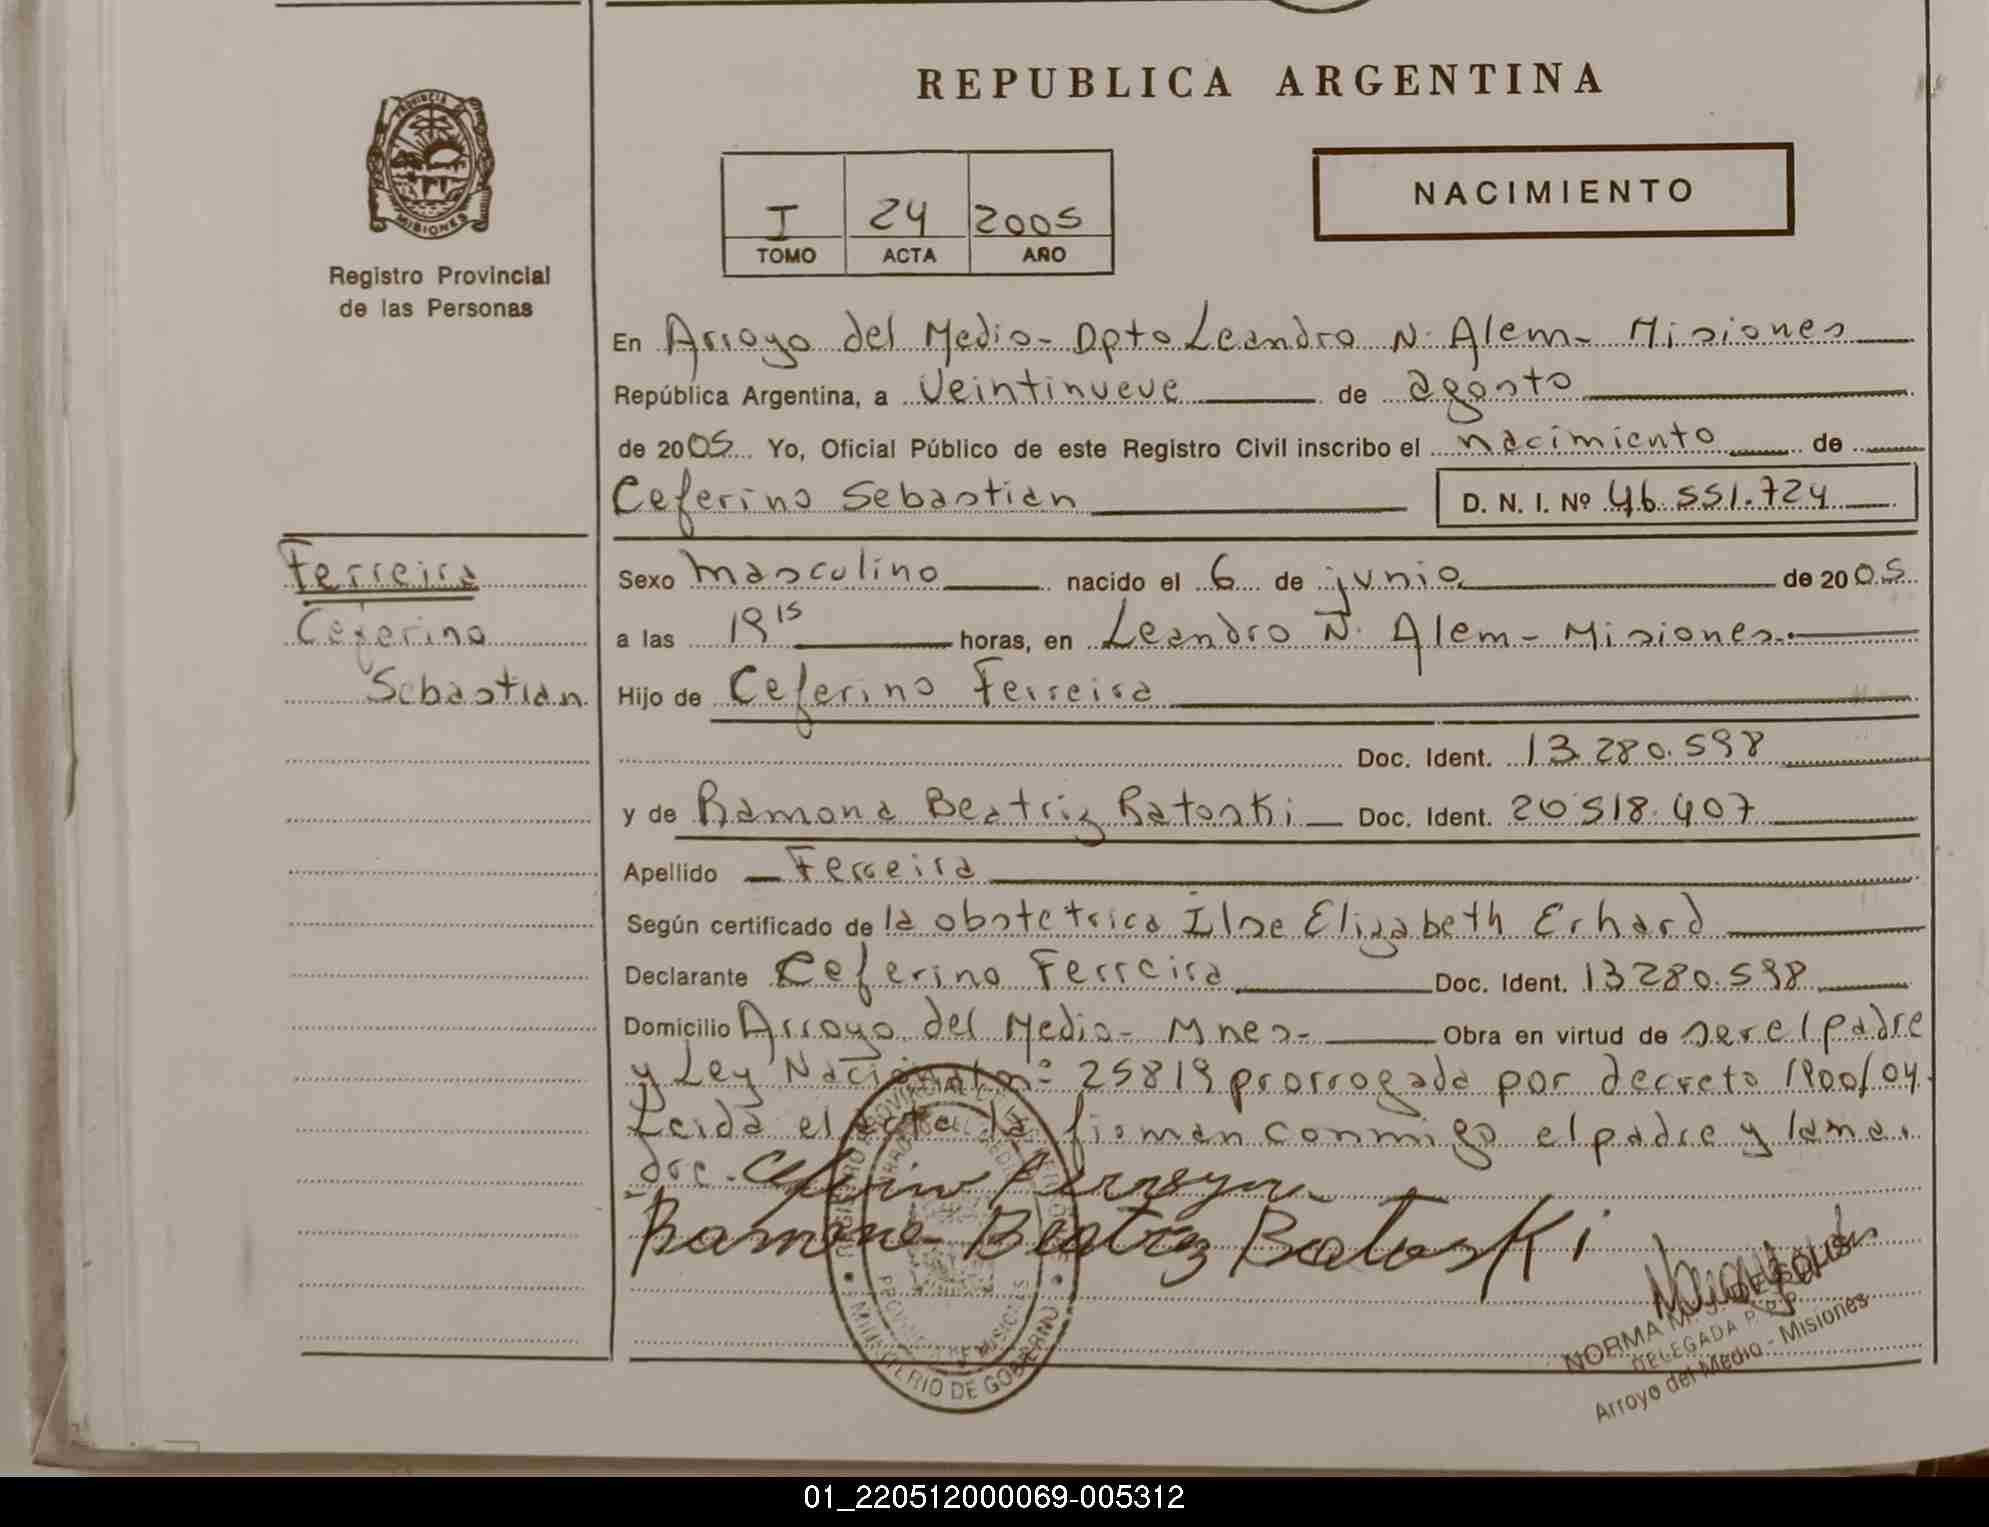 REPUBLICA ARGENTINA
PROVINCIA DE MISIONES
Registro Provincial
de las Personas
NACIMIENTO
I 24 2005
TOMO ACTA AÑO
En Arroyo del Medio - Dpto Leandro N. Alem - Misiones
República Argentina, a Veintinueve de agosto
de 2005 Yo, Oficial Público de este Registro Civil inscribo el nacimiento de
Ceferino Sebastian D. N. I. Nº 46.551.724
Ferreira
Ceferino
Sebastian
Sexo masculino nacido el 6 de junio de 2005
a las 19 15 horas, en Leandro N. Alem - Misiones.
Hijo de Ceferino Ferreira
Doc. Ident. 13.280.598
y de Ramona Beatriz Ratoski Doc. Ident. 20518.407
Apellido Ferreira
Según certificado de la obstetrica Ilse Elizabeth Erhard
Declarante Ceferino Ferreira Doc. Ident. 13280.598
Domicilio Arroyo del Medio - Mnes - Obra en virtud de ser el padre
y Ley Nacional nº 25819 prorrogada por decreto 1900/04.
Leida el acta la firman conmigo el padre y la ma
dre.
Ramona Beatriz Batoski
REGISTRO PROVINCIAL DE LAS PERSONAS
MINISTERIO DE GOBIERNO
PROVINCIA DE MISIONES
NORMA M. DE SOLIS
DELEGADA
Arroyo del Medio - Misiones
01_220512000069-005312